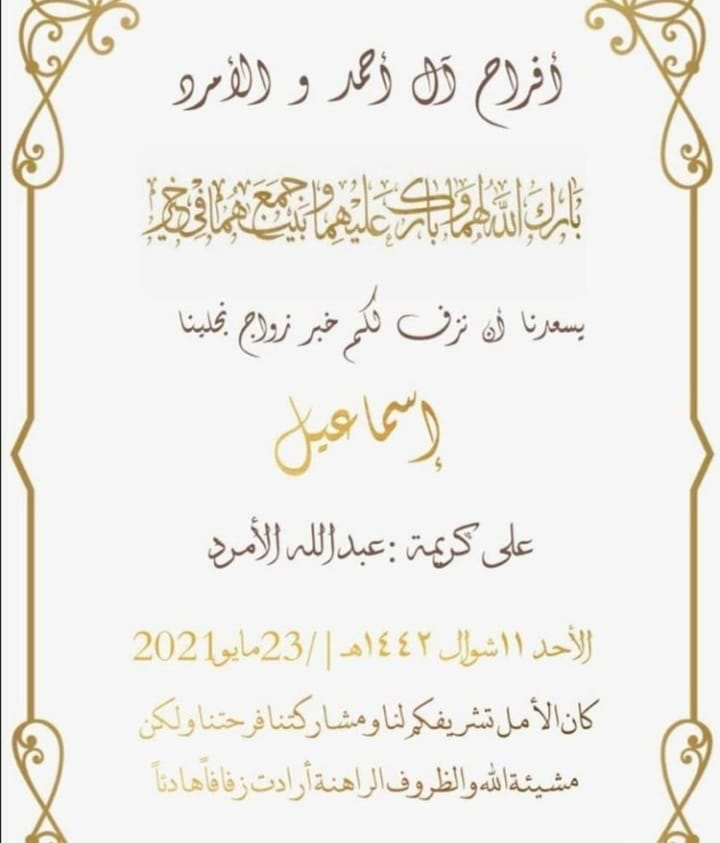 أفراح آل أحمد و الأمرد
بَارَكَ اللهُ لهما وبَارَكَ عَلَيْهِمَا وجَمَعَ بَيْنَهُمَا فِي خَيْرٍ
يسعدنا أن نزف لكم خبر زواج نجلينا
إسماعيل
على كريمة :عبدالله الأمرد
الأحد ١١شوال ١٤٤٢هـ | /23مايو2021
كان الأمل تشريفكم لنا ومشاركتنا فرحتنا ولكن
مشيئة الله والظروف الراهنة أرادت زفافاً هادئاً